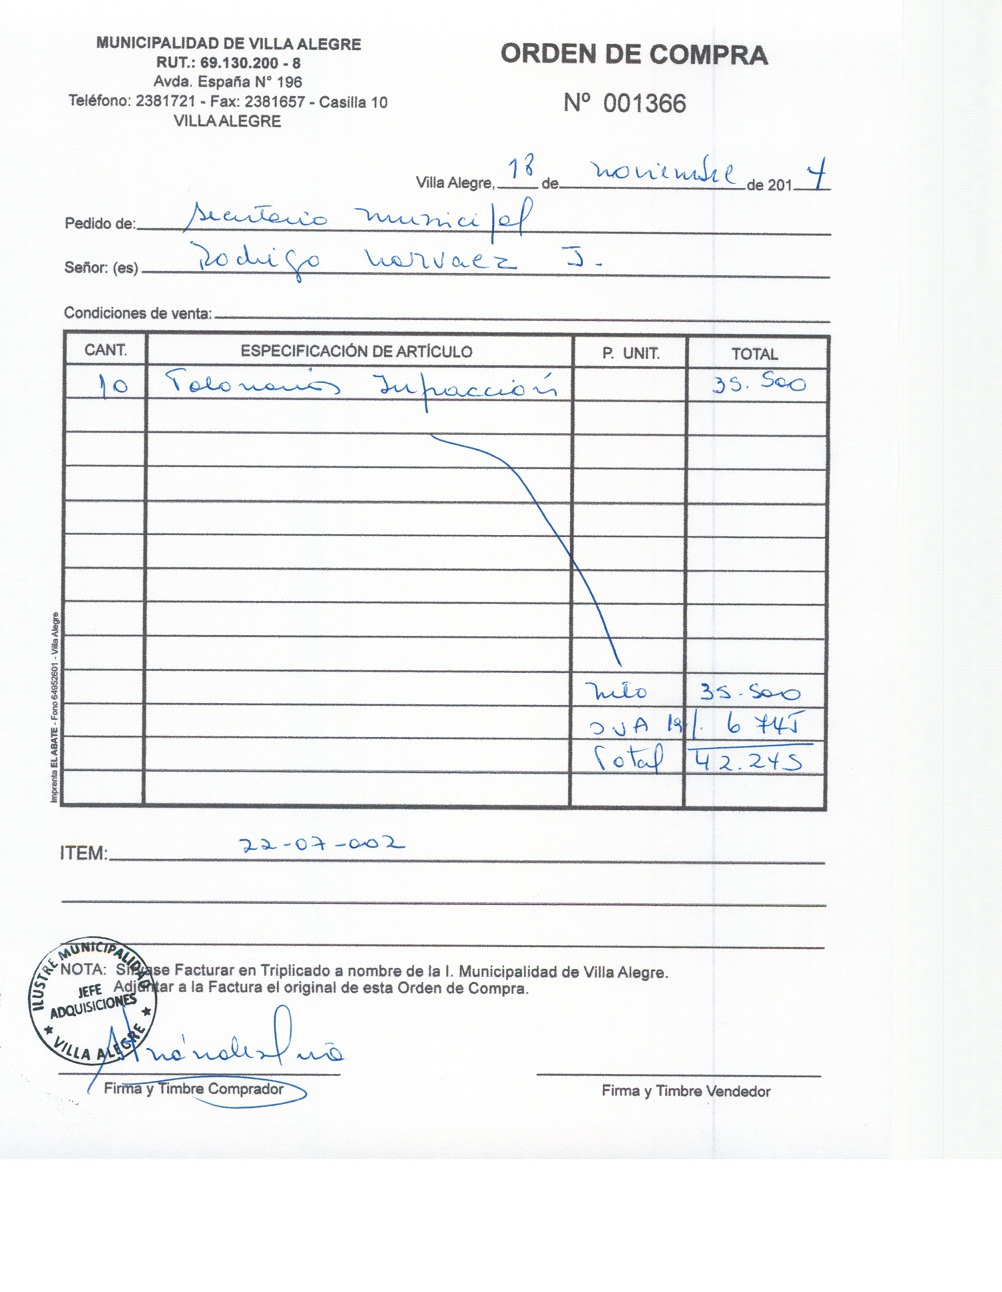 MUNICIPALIDAD DE VILLA ALEGRE
RUT.: 69.130.200 - 8
Avda. España N° 196
Teléfono: 2381721 - Fax: 2381657 - Casilla 10
VILLA ALEGRE
ORDEN DE COMPRA
Nº 001366
Villa Alegre, 18 de noviembre de 2014
Pedido de: Secretario municipal
Señor: (es) Rodrigo Narvaez J.
Condiciones de venta:
CANT. ESPECIFICACIÓN DE ARTÍCULO P. UNIT. TOTAL
10 Talonarios Infracción 35.500
Neto 35.500
IVA 19%. 6 745
Total 42.245
Imprenta EL ABATE - Fono 64952601 - Villa Alegre
ITEM: 22-07-002
NOTA: Sírvase Facturar en Triplicado a nombre de la I. Municipalidad de Villa Alegre.
Adjuntar a la Factura el original de esta Orden de Compra.
ILUSTRE MUNICIPALIDAD
JEFE
ADQUISICIONES
★ VILLA ALEGRE ★
Firma y Timbre Comprador
Firma y Timbre Vendedor